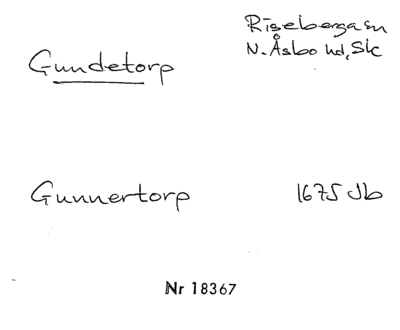 Riseberga sn
Gundetorp
N. Åsbo hd, Sk
Gunnertorp 1675 Jb
Nr 18367